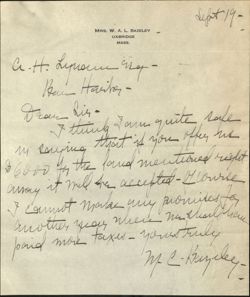 Sept 19-
MRS. W. A. L. BAZELEY
UXBRIDGE
MASS.
A. H. Lynam Esq-
Bar Harbor
Dear Sir-
I think I am quite safe
in saying that if you offer me
$6000 for the land mentioned right
away it will be accepted- Of course
I cannot make any promises for
another year when we should have
paid more taxes- Yours truly
M C- Bazeley-